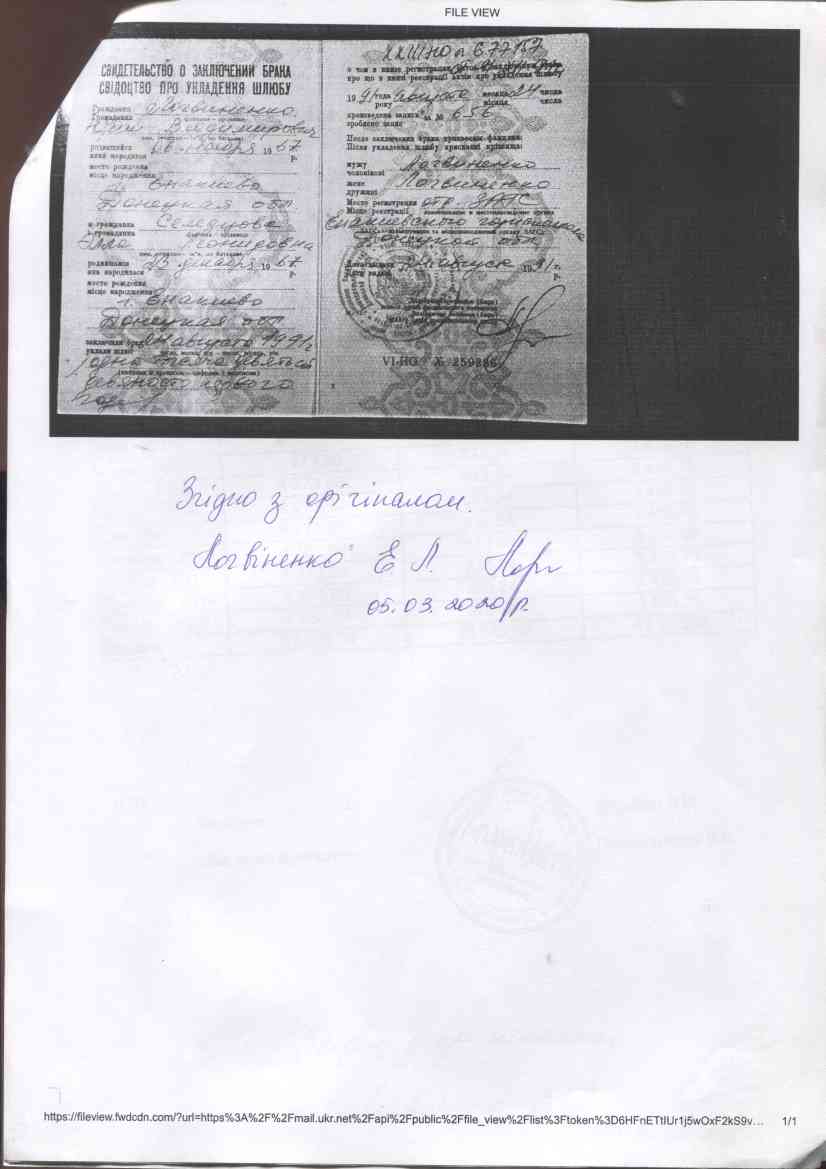 FILE VIEW
СВИДЕТЕЛЬСТВО О ЗАКЛЮЧЕНИИ БРАКА
СВІДОЦТВО ПРО УКЛАДЕННЯ ШЛЮБУ
Гражданин Логвиненко
Громадянин
Владимирович
родившийся 1967
який народився р.
место рождения
місце народження
г. Енакиево
Донецкая обл.
и гражданка
і громадянка
Леонидовна
родившаяся 13 декабря 1967
яка народилася р.
место рождения
місце народження
г. Енакиево
Донецкая обл.
заключили брак 24 августа 1991г.
уклали шлюб
одна тысяча девятьсот
девяносто первого
года
о чем в книге регистрации
про що в книзі реєстрації актів про укладення шлюбу
1991 года августа месяца 24 числа
року місяця числа
произведена запись за № 656
зроблено запис
После заключения брака присвоены фамилии:
Після укладення шлюбу присвоєні прізвища:
мужу Логвиненко
чоловікові
жене Логвиненко
дружині
Место регистрации отд. ЗАГС
Місце реєстрації
Енакиевского горисполкома
Донецкой обл.
24 августа 1991 г.
р.
VI-НО № 259386
Згідно з орігіналом.
Логвіненко Е Л.
05.03.2020р.
https://fileview.fwdcdn.com/?url=https%3A%2F%2Fmail.ukr.net%2Fapi%2Fpublic%2Ffile_view%2Flist%3Ftoken%3D6HFnETtIUr1j5wOxF2kS9v... 1/1